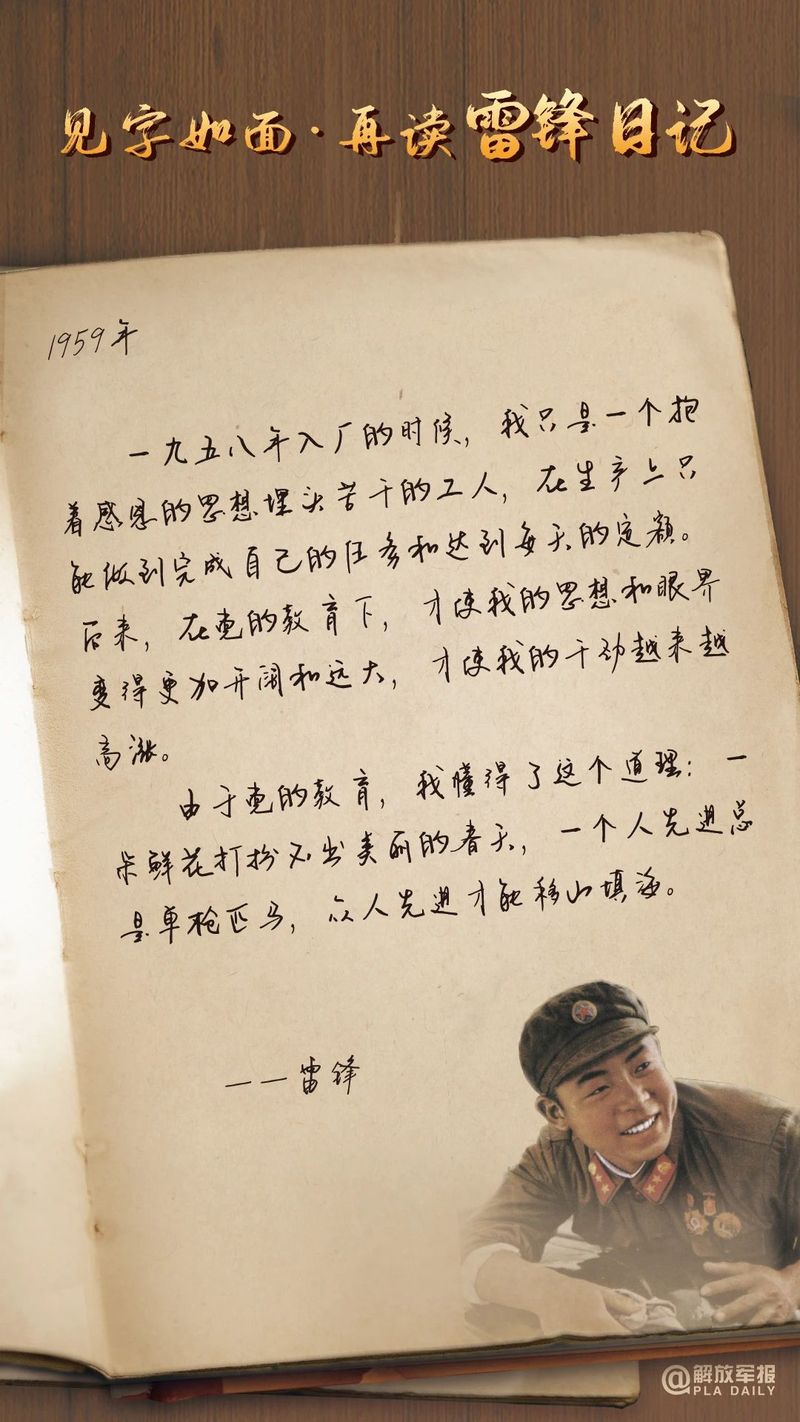 见字如面·再读雷锋日记
1959年
一九五八年入厂的时候，我只是一个抱
着感恩的思想埋头苦干的工人，在生产上只
能做到完成自己的任务和达到每天的定额。
后来，在党的教育下，才使我的思想和眼界
变得更加开阔和远大，才使我的干劲越来越
高涨。
由于党的教育，我懂得了这个道理：一
朵鲜花打扮不出美丽的春天，一个人先进总
是单枪匹马，众人先进才能移山填海。
——雷锋
@解放军报
PLA DAILY